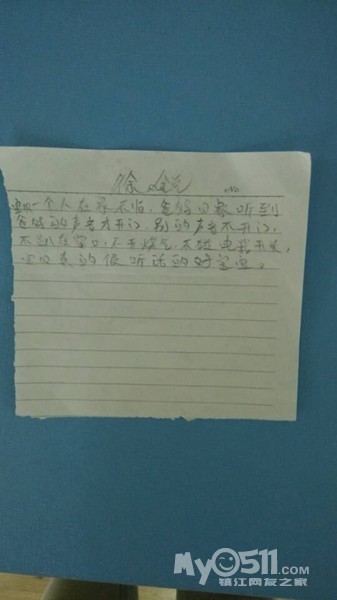 徐
一个人在家不怕,爸妈回家听到
爸妈的声音才开门,别的声音不开门,
不趴在窗口,不开煤气,不碰电器开关,
的很听话的好宝宝。
My0511.com
镇江网友之家